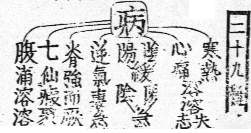 二十九難
病
寒熱
心痛
溶溶失志
陽 陰
逆氣裏急
脊強而厥
七疝瘕聚
腹滿溶溶